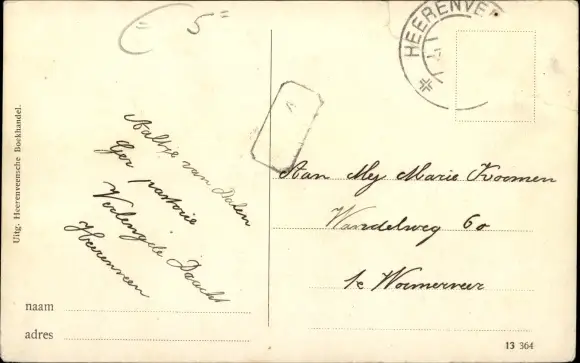 € 5=
HEERENVEEN
Uitg. Heerenveensche Boekhandel.
Aaltje van Dalen
Ger pastorie
Verlengde Dracht
Heerenveen
A
Aan Mej Marie Koomen
Wandelweg 60
te Wormerveer
naam
adres
13 364